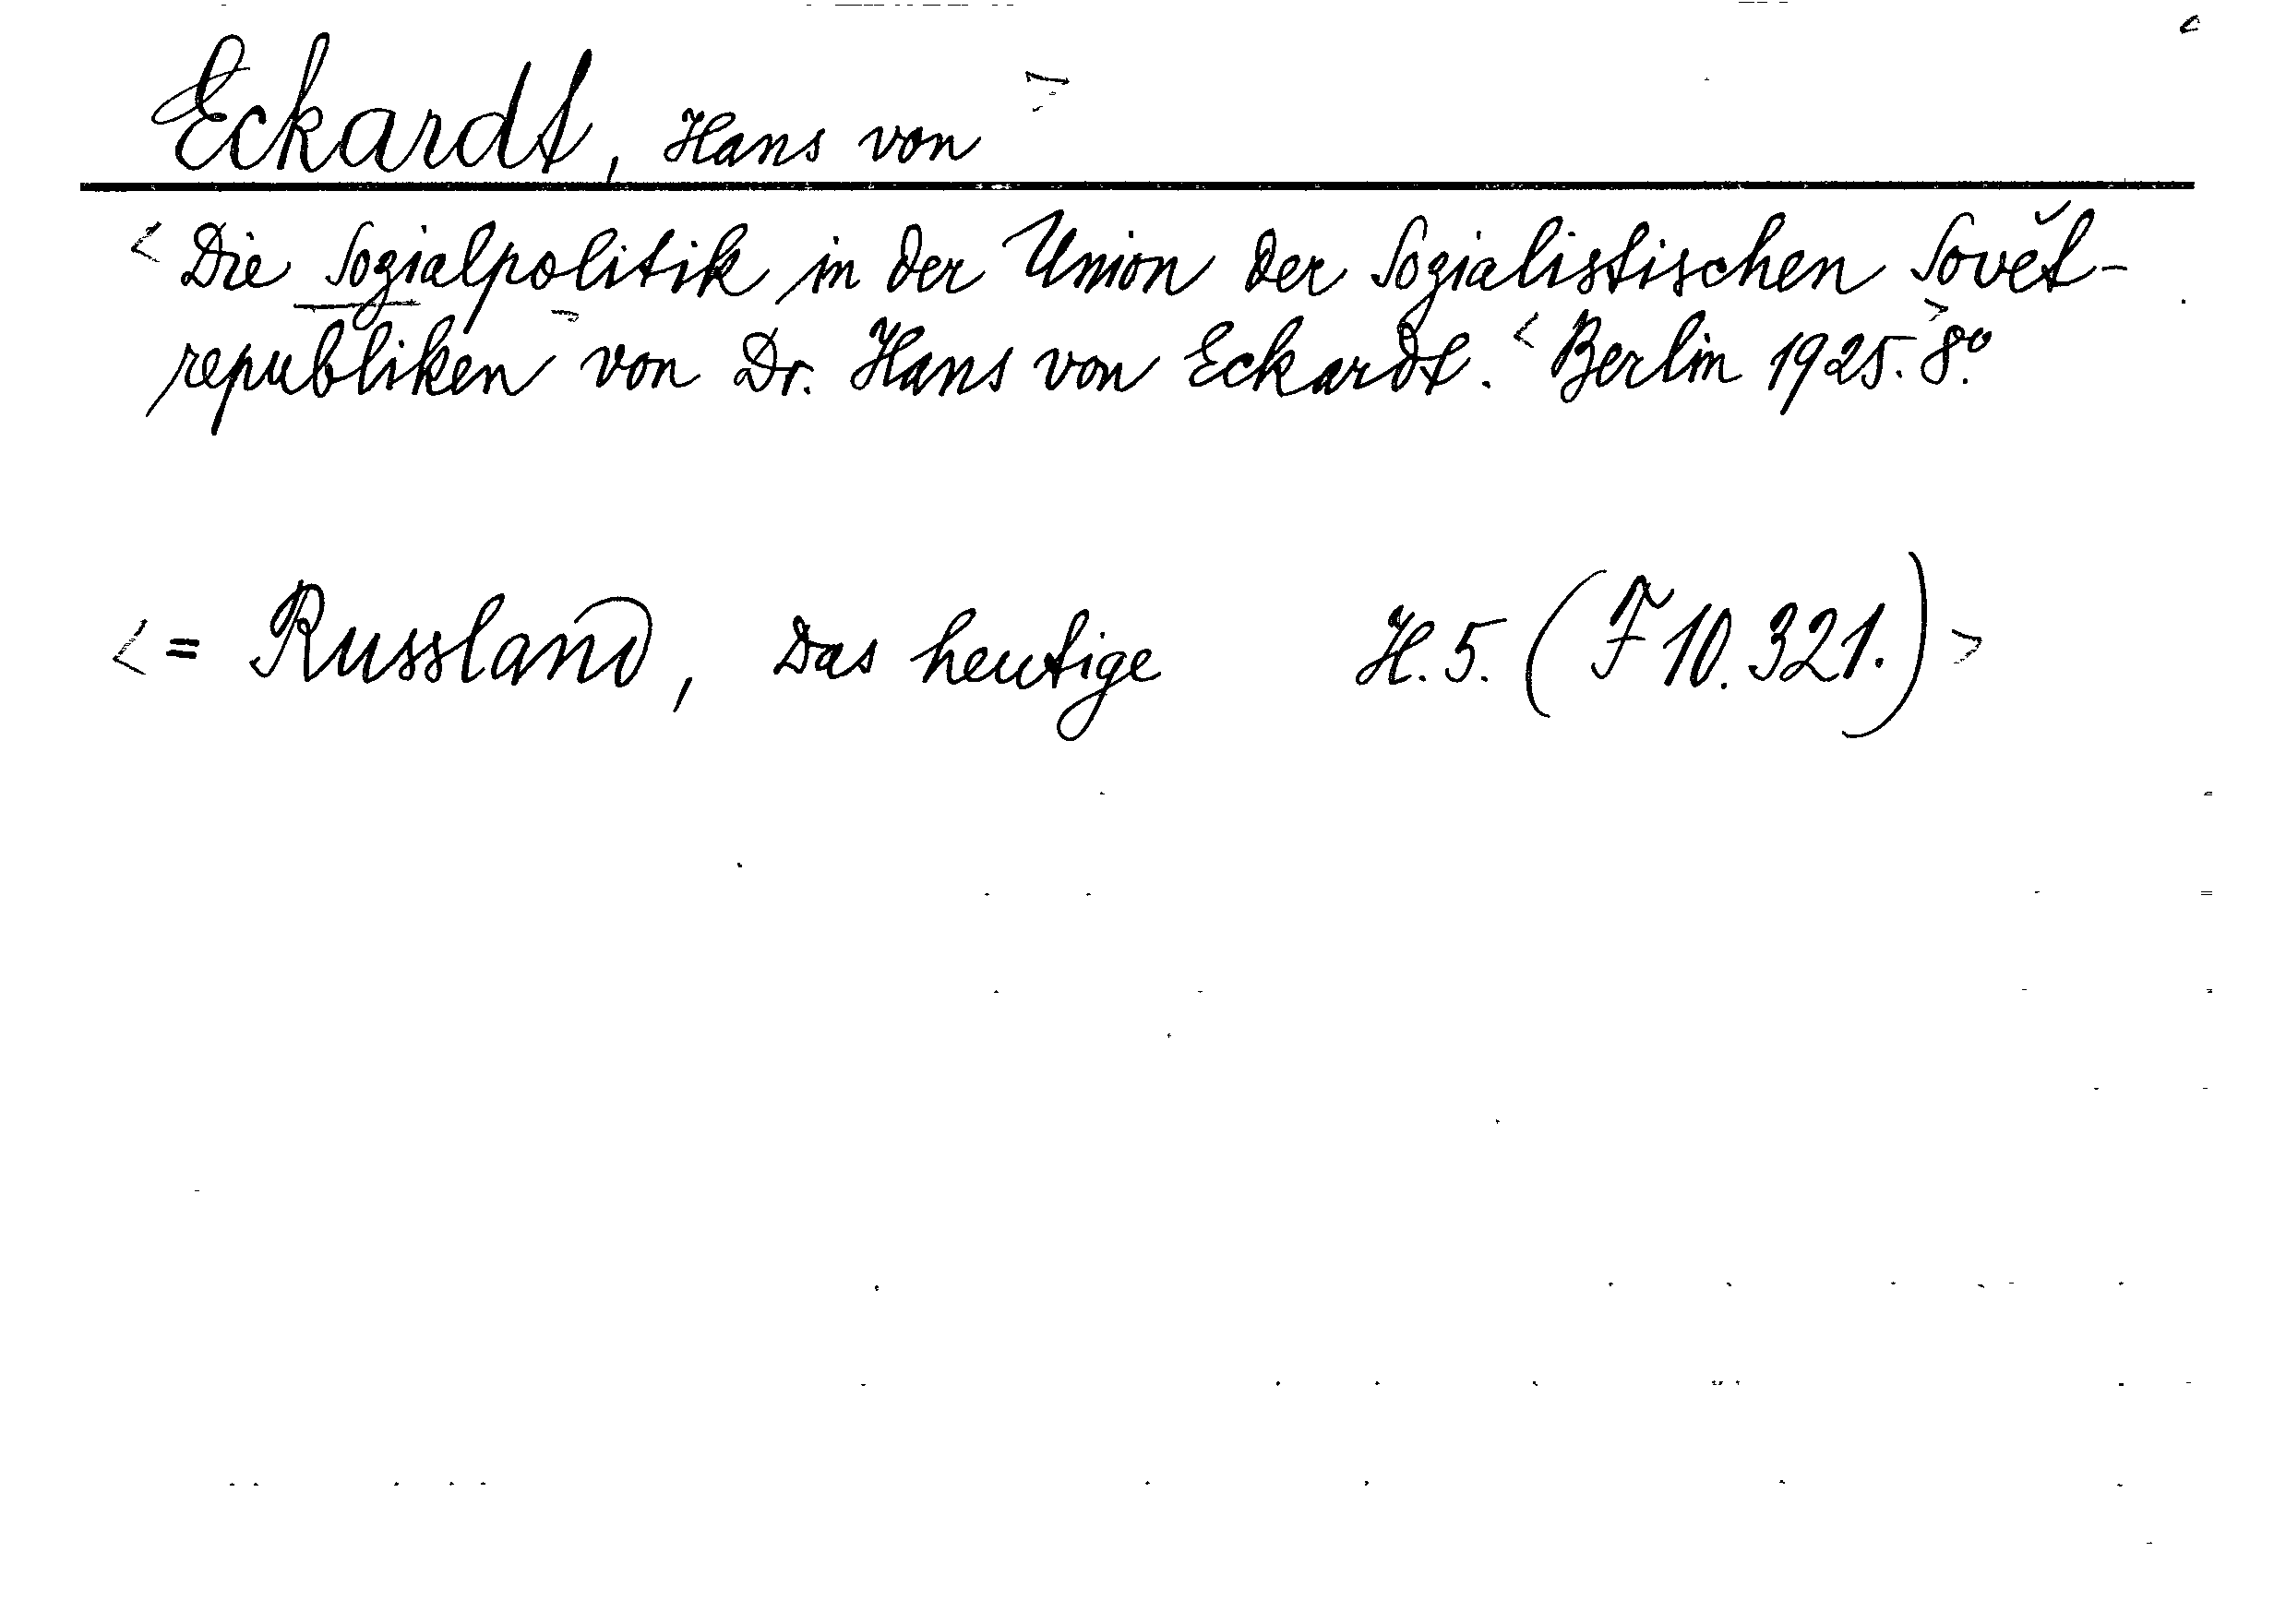 Eckardt, Hans von
< Die Sozialpolitik in der Union der Sozialistischen Sovět-
republiken von Dr. Hans von Eckardt. < Berlin 1925. 8º. >
< = Russland, Das heutige H. 5. (F 10. 321.) >